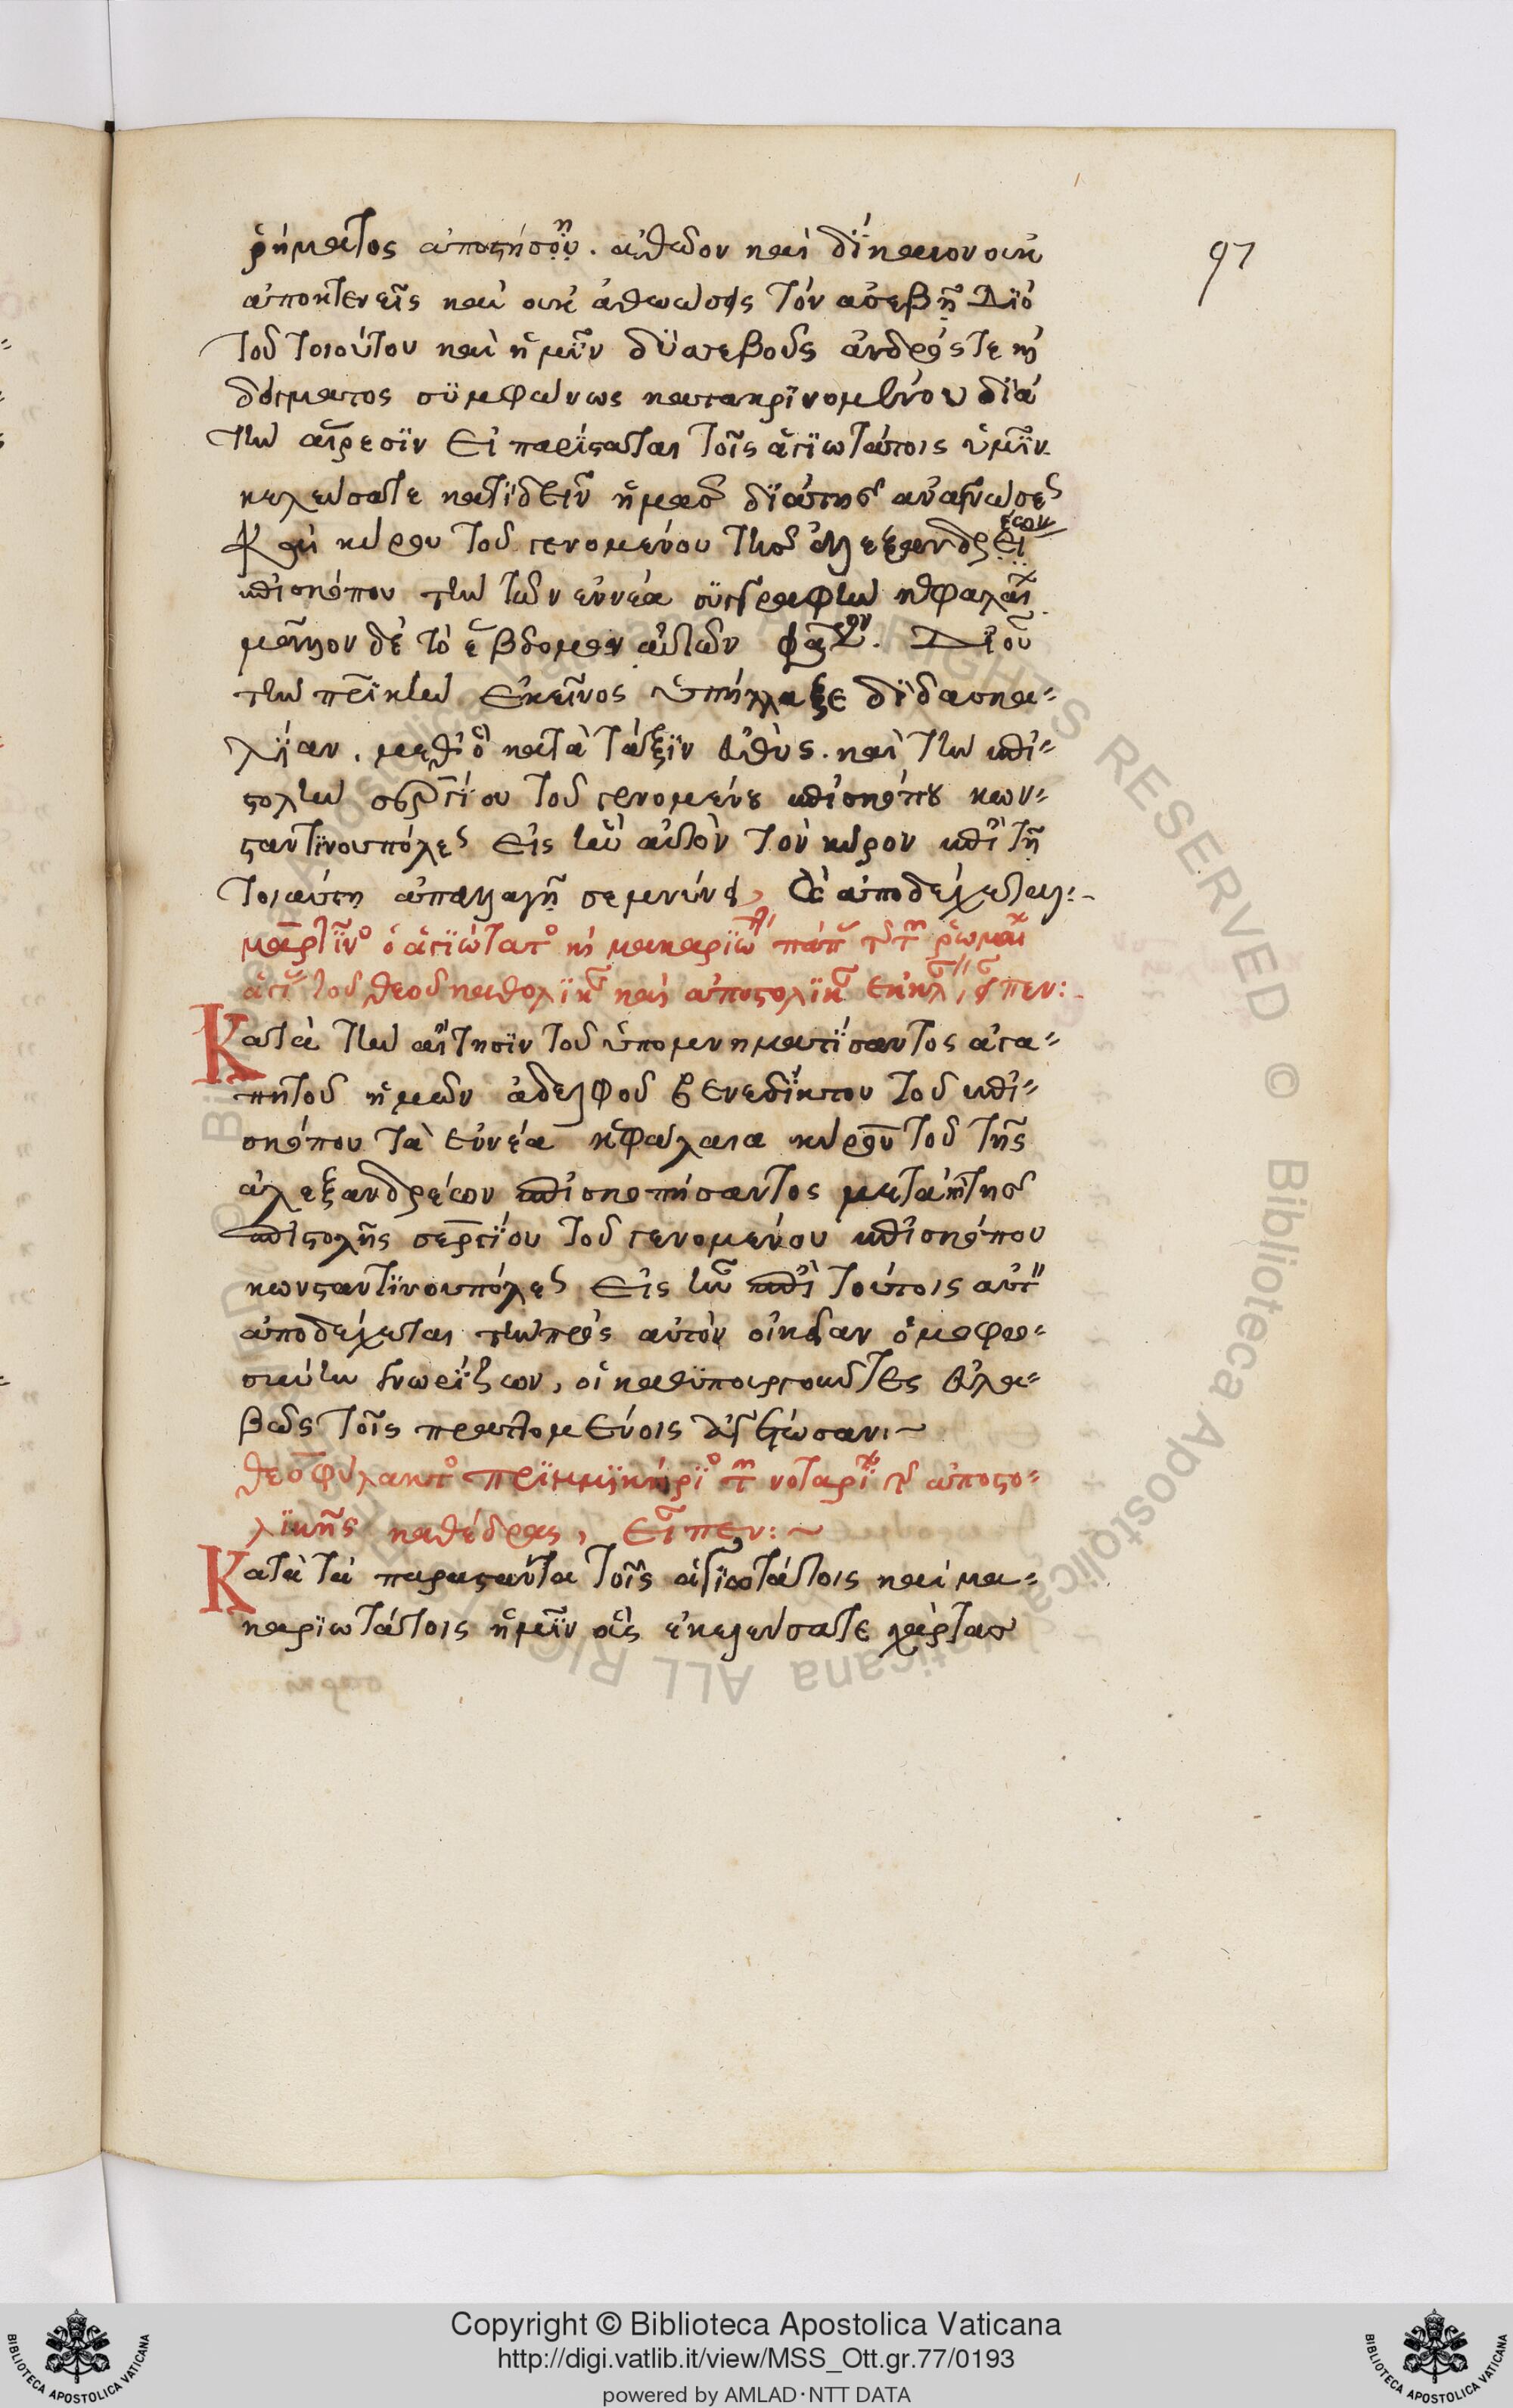 97
ῥήματος ἀποστήσῃ. ἀθῶον καὶ δίκαιον οὐκ
ἀποκτενεῖς καὶ οὐκ ἀθωώσεις τὸν ἀσεβῆ Διὸ
τοῦ τοιούτου καὶ ἡμῖν δυσσεβοῦς ἀνδρός τε κὶ
δόγματος συμφώνως κατακρινομένου διὰ
τὴν αἵρεσιν εἰ παρίσταται τοῖς ἁγιωτάτοις ὑμῖν
κελεύσατε κατιδεῖν ἡμᾶς δι' αὐτῆς ἀναγνώσεως
Καὶ κύρου τοῦ γενομένου τῆς ἀλεξανδρέων
ἐπισκόπου τὴν τῶν ἐννέα συγγραφὴν κεφαλαί
μᾶλλον δὲ τὸ ἕβδομον αὐτῶν Δι' οὗ
τὴν πατρικὴν ἐκεῖνος ὑπήλλαξε διδασκα-
λίαν. μεθ' ὃ κατὰ τάξιν εὐθὺς. καὶ τὴν ἐπι-
στολὴν σεργίου τοῦ γενομένου ἐπισκόπου κων-
σταντινουπόλεως εἰς ἣν αὐτὸν τὸν κύρον ἐπὶ τῇ
τοιαύτῃ ἀπαλλαγῇ σεμνύνει, καὶ ἀποδέχεται:-
μαρτῖνος ὁ ἁγιώτατος κὶ μακαριώτ πάπας τῆς τῶν ῥωμαί
ἁγί τοῦ θεοῦ καθολικῆς καὶ ἀποστολικῆς ἐκκλ, εἶπεν:-
Κατὰ τὴν αἴτησιν τοῦ ὑπομνηματίσαντος ἀγα-
πητοῦ ἡμῶν ἀδελφοῦ βενεδίκτου τοῦ ἐπι-
σκόπου τὰ ἐννέα κεφάλαια κύρου τοῦ τῆς
ἀλεξανδρέων ἐπισκοπήσαντος μετὰ κὶ τῆς
ἐπιστολῆς σεργίου τοῦ γενομένου ἐπισκόπου
κωνσταντινουπόλεως εἰς ἣν ἐπὶ τούτοις αὐτ
ἀποδέχεται τὴν πρὸς αὐτὸν οἰκείαν ὁμοφρο-
σύνην γνωρίζων, οἱ καθυπουργοῦντες εὐλα-
βῶς τοῖς πραττομένοις δεξιώσαν:~
θεοφύλακτος πριμμικήριος τῶν νοταρί τῆς ἀποστο-
λικῆς καθέδρας, εἶπεν:~
Κατὰ τὰ παραστάντα τοῖς ἁγιωτάτοις καὶ μα-
καριωτάτοις ἡμῖν οὓς ἐκελεύσατε χάρτας
Copyright © Biblioteca Apostolica Vaticana
http://digi.vatlib.it/view/MSS_Ott.gr.77/0193
powered by AMLAD·NTT DATA